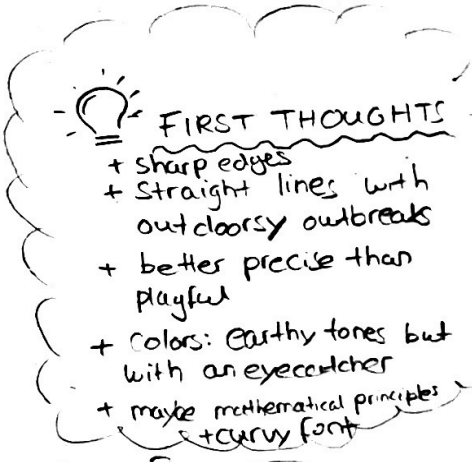 FIRST THOUGHTS
+ sharp edges
+ Straight lines with
outdoorsy outbreaks
+ better precise than
playful
+ Colors: earthy tones but
with an eyecatcher
+ maybe mathematical principles
+curvy font